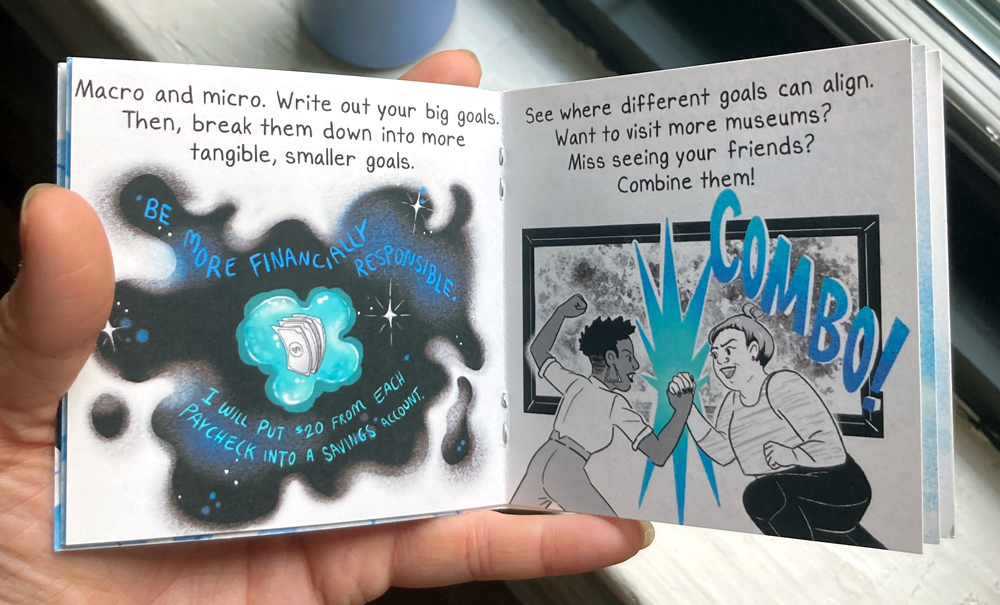 Macro and micro. Write out your big goals.
Then, break them down into more
tangible, smaller goals.
BE MORE FINANCIALLY
RESPONSIBLE.
$
I WILL PUT $20 FROM EACH
PAYCHECK INTO A SAVINGS ACCOUNT.
See where different goals can align.
Want to visit more museums?
Miss seeing your friends?
Combine them!
COMBO!